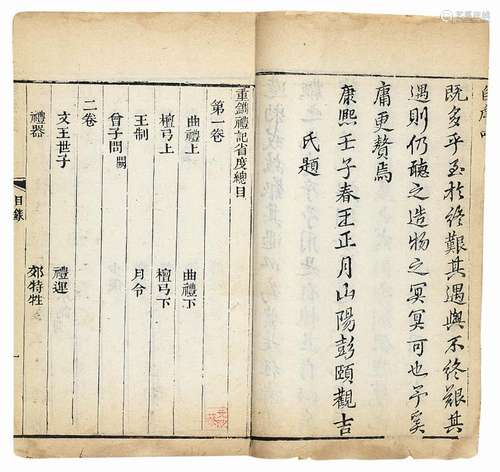 既多乎至於終艱其遇與不終艱其
遇則仍聽之造物之冥冥可也予奚
庸更贅焉
康熙壬子春王正月山陽彭頤觀吉
氏題
重鐫禮記省度總目
第一卷
曲禮上 曲禮下
檀弓上 檀弓下
王制 月令
曾子問闕
二卷
文王世子 禮運
禮器 郊特牲
目錄 一